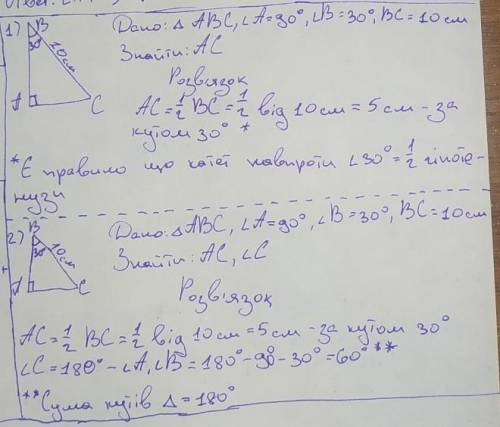 1) B Дано: △ ABC, ∠A=90°, ∠B=30°, BC=10см
30° 10см
A C
Знайти: AC
Розв'язок
AC=1/2 BC=1/2 від 10см=5см-за
кутом 30° *
*Є правило що катет навпроти ∠30°=1/2 гіпоте-
нузи
2) B Дано: △ABC, ∠A=90°, ∠B=30°, BC=10см
30° 10см
A C
Знайти: AC, ∠C
Розв'язок
AC=1/2 BC=1/2 від 10см=5см-за кутом 30°
∠C=180°-∠A,∠B=180°-90°-30°=60° **
**Сума кутів △=180°